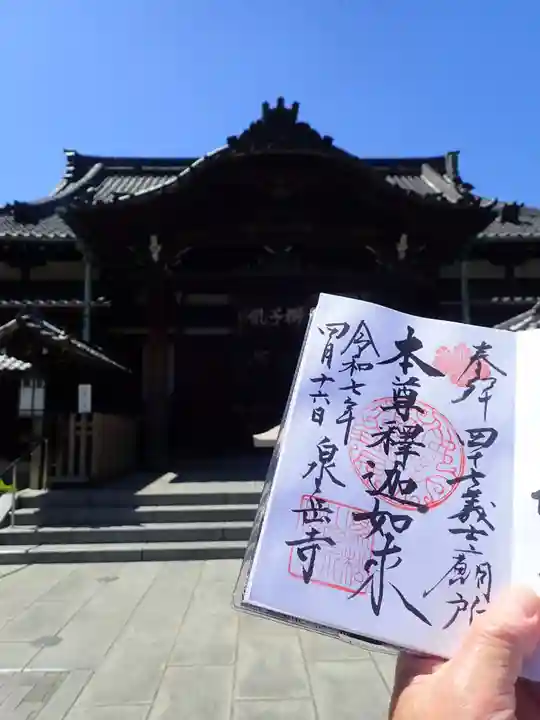 獅子吼
奉拝 四十七義士廟所
本尊釋迦如来
令和七年
四月十六日 泉岳寺